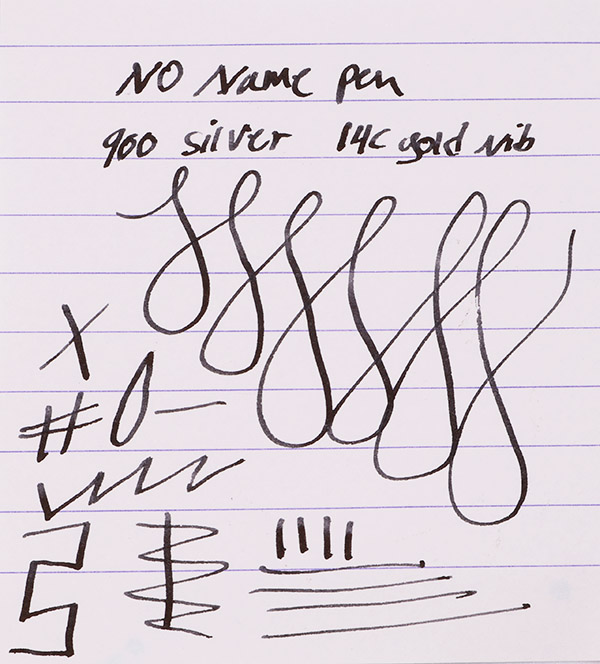 NO Name pen
900 silver 14c gold nib
X
# 0 -